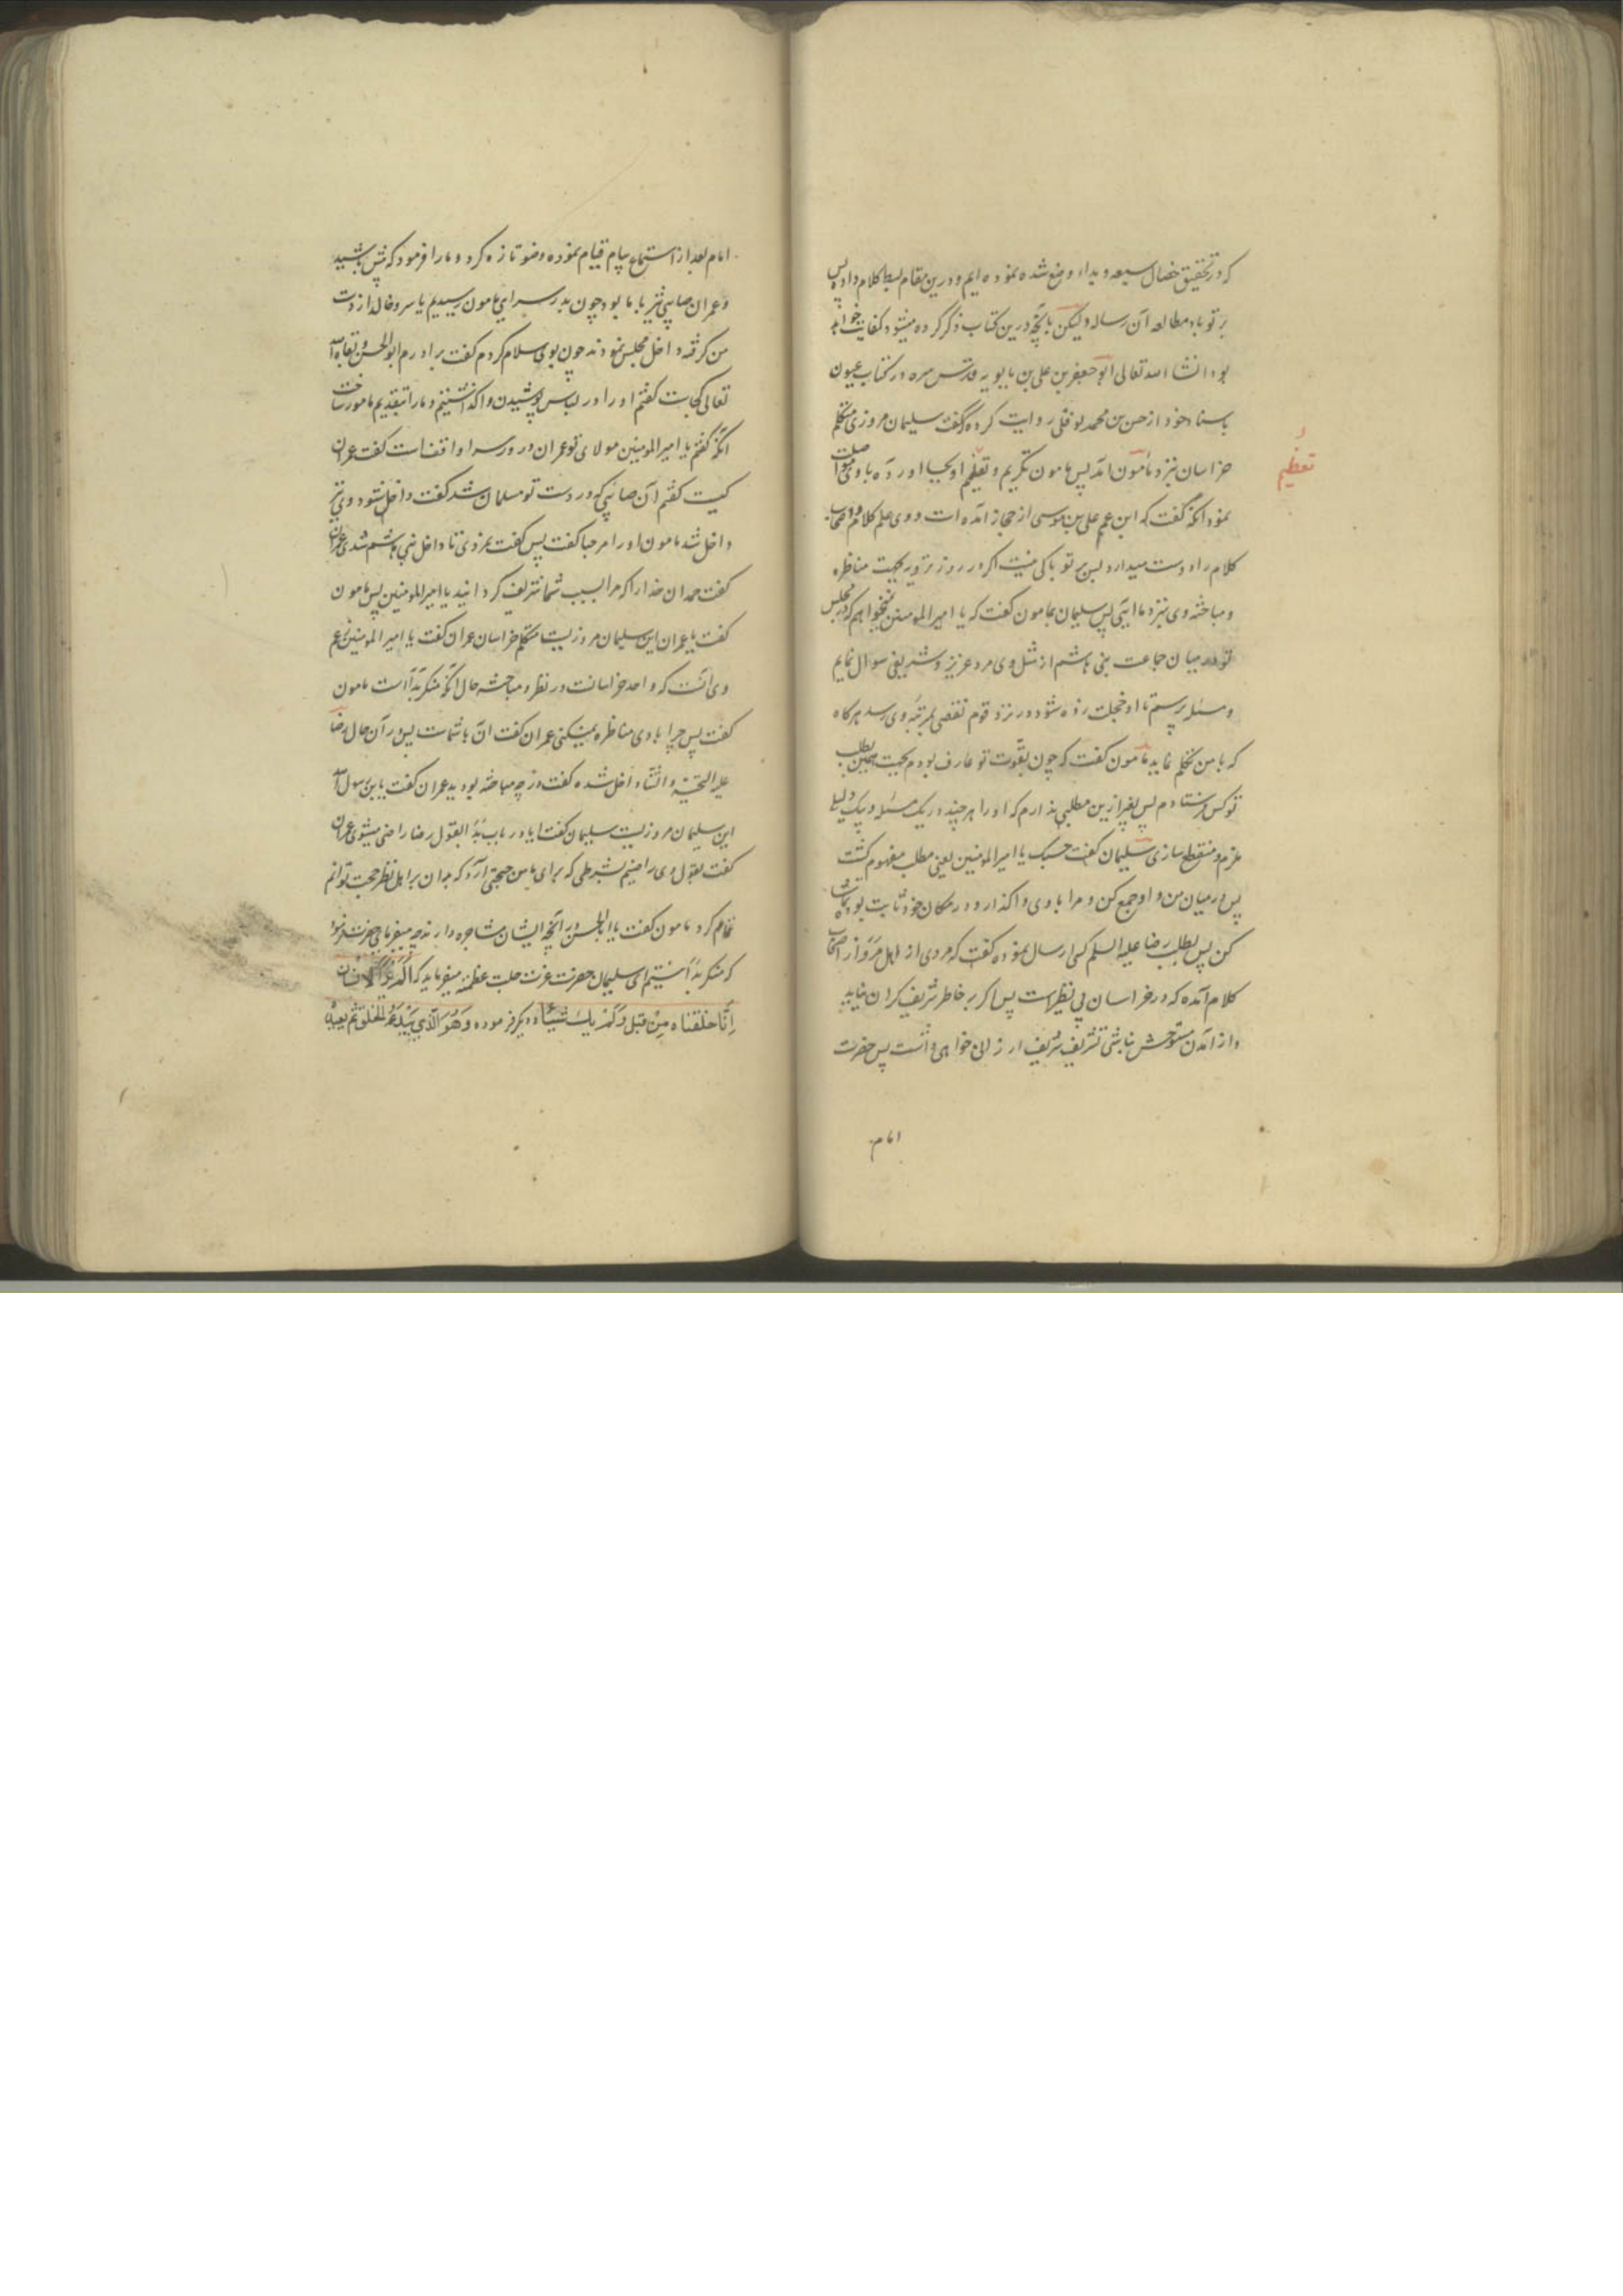 که در تحقیق خصال سبعه و بداء وضع شده نموده ایم و درین مقام بسط کلام داده پس
بر تو باد مطالعه آن رساله ولیکن بانچه درین کتاب ذکر کرده میشود کفایت خواهد
بود انشا الله تعالی ابو جعفر بن علی بن بابویه قدس سره در کتاب عیون
باسناد خود از حسن بن محمد نوفلی روایت کرده که گفت سلیمان مروزی متکلم
خراسان نزد مامون امد پس مامون تکریم و تعظیم او بجا اورده باوی مواصلت
تعظیم
نمود انکه گفت که ابن عم علی بن موسی از حجاز امده است و وی علم کلام و اصحاب
کلام را دوست میدارد پس بر تو باکی نیست اکر در روز ترویه بجهت مناظره
و مباحثه وی نزد ما ایی پس سلیمان بمامون گفت که یا امیر المومنین نمیخواهم که در مجلس
تو در میان جماعت بنی هاشم از مثل وی مرد عزیز و شریفی سوال نمایم
و مسئله پرستم تا او خجلت زده شود در نزد قوم نقصی بمرتبه وی رسد هرکاه
که با من تکلم نماید مامون گفت که چون بقوت تو عارف بودم بجهت همین بطلب
تو کس فرستادم پس بغیر ازین مطلبی ندارم که او را هر چند در یک مسئله و یک دلیل
ملزم و منقطع سازی سلیمان گفت حسبک یا امیر المومنین یعنی مطلب مفهوم گشت
پس در میان من و او جمع کن و مرا باوی واگذار و در مکان خود ثابت بوده
کن پس بطلب رضا علیه السلم کس ارسال نموده گفت که مردی از اهل مرو از اصحاب
کلام آمده که در خراسان بی نظیر است پس اکر بر خاطر شریف گران نیاید
و از آمدن متوحش نباشی تشریف شریف ارزانی خواهی داشت پس حضرت
امام
امام بعد از استماع پیام قیام نموده وضو تازه کرد و ما را فرمود که پیش باشید
و عمران صابئی نیز با ما بود چون بدر سرای مامون رسیدیم یاسر و خالد از دست
من گرفته داخل مجلس نمودند چون بوی سلام کردم گفت برادرم ابو الحسن ابقاه الله
تعالی کجاست گفتم او را در لباس پوشیدن واگذاشتیم و ما را بتقدیم مامور ساخت
انکه گفتم یا امیر المومنین مولای تو عمران در در سرا واقفست گفت عمران
کیست گفتم آن صابئی که در دست تو مسلمان شد گفت داخل شود وی نیز
داخل شد مامون او را مرحبا گفت پس گفت نمردی تا داخل بنی هاشم شدی عمران
گفت حمد ان خدا را که مرا بسبب شما تشریف گردانید یا امیر المومنین پس مامون
گفت یا عمران این سلیمان مروزیست متکلم خراسان عمران گفت یا امیر المومنین زعم
وی انست که واحد خراسانست در نظر و مباحثه حال انکه منکر بدا است مامون
گفت پس چرا باوی مناظره نمیکنی عمران گفت ان با شماست پس در آن حال رضا
علیه التحیة و الثناء داخل شده گفت در چه مباحثه بودید عمران گفت یا بن رسول الله
این سلیمان مروزیست سلیمان گفت ایا در باب بدا بقول رضا راضی میشوی عمران
گفت بقول وی راضیم بشرطی که برای ما بین حجتی آرد که بدان بر اهل نظر حجت توانم
تمام کرد مامون گفت یا ابا الحسن در انچه ایشان مشاجره دارند چه میفرمایی حضرت فرمود
که منکر بدا نیستیم ای سلیمان حضرت عزت جلت عظمته میفرماید که أَوَلَا يَذْكُرُ الْإِنْسَانُ
أَنَّا خَلَقْنَاهُ مِنْ قَبْلُ وَلَمْ يَكُ شَيْئًا و دیگر فرموده وَهُوَ الَّذِي يَبْدَؤُ الْخَلْقَ ثُمَّ يُعِيدُهُ